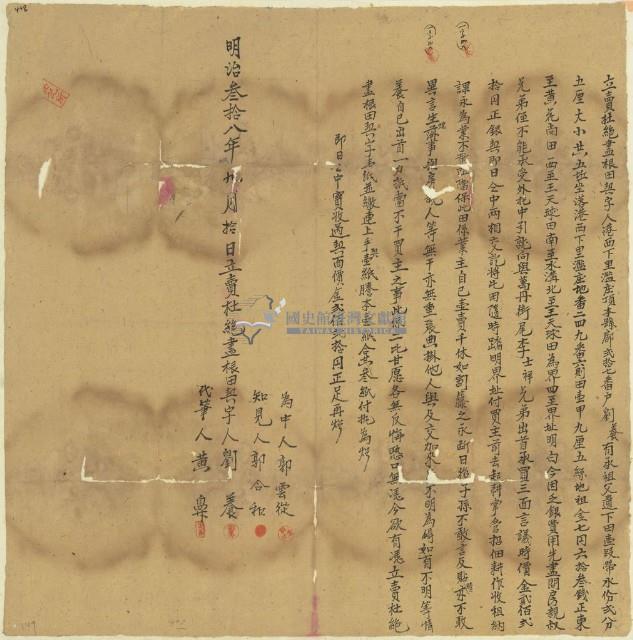 立賣杜絕盡根田契字人港西下里濫庄項本縣廓貳拾七番戶劉養有承祖父遺下田壹段帶水份貳分
五厘大小廿五坵坐落港西下里濫庄地番二四九番六則田壹甲九厘五絲地租金七円六拾叁錢正東
至黃尧南田西至王天球田南至水溝北至王天球田為界四至界址明白今因乏銀費用先盡問房親叔
兄弟侄不能承受外托中引就向與萬丹街尾李士祥兄弟出首承買三面言議時價金貳佰弍
拾円正銀契即日仝中兩相交訖將此田隨時踏明界址付買主前去起耕掌管招佃耕作收租納
課永為業不
保此田係業主自己壹賣千休如割藤之永斷日後子孫不敢言反贖亦不敢
異言生滋事與房親人等無干亦無重張典掛他人與及交加來歷不明為碍如有不明等情
養自己出首一力抵當不干買主之事此係二比甘愿各無反悔恐口無憑今欲有憑立賣杜絕
盡根田契字壹紙並繳連上手契壹紙謄本壹紙合共叁紙付執為炤
即日仝中實收過契面價金貳佰弍拾円正足再炤
為中人郭雲從
知見人郭合和
明治叁拾八年 月拾日立賣杜絕盡根田契字人劉養
代筆人黃
國史館臺灣文獻館
TAIWAN HISTORICA